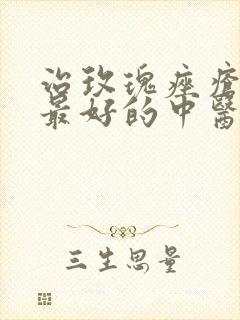 治玫瑰痤瘡
最好的中醫
三生思量